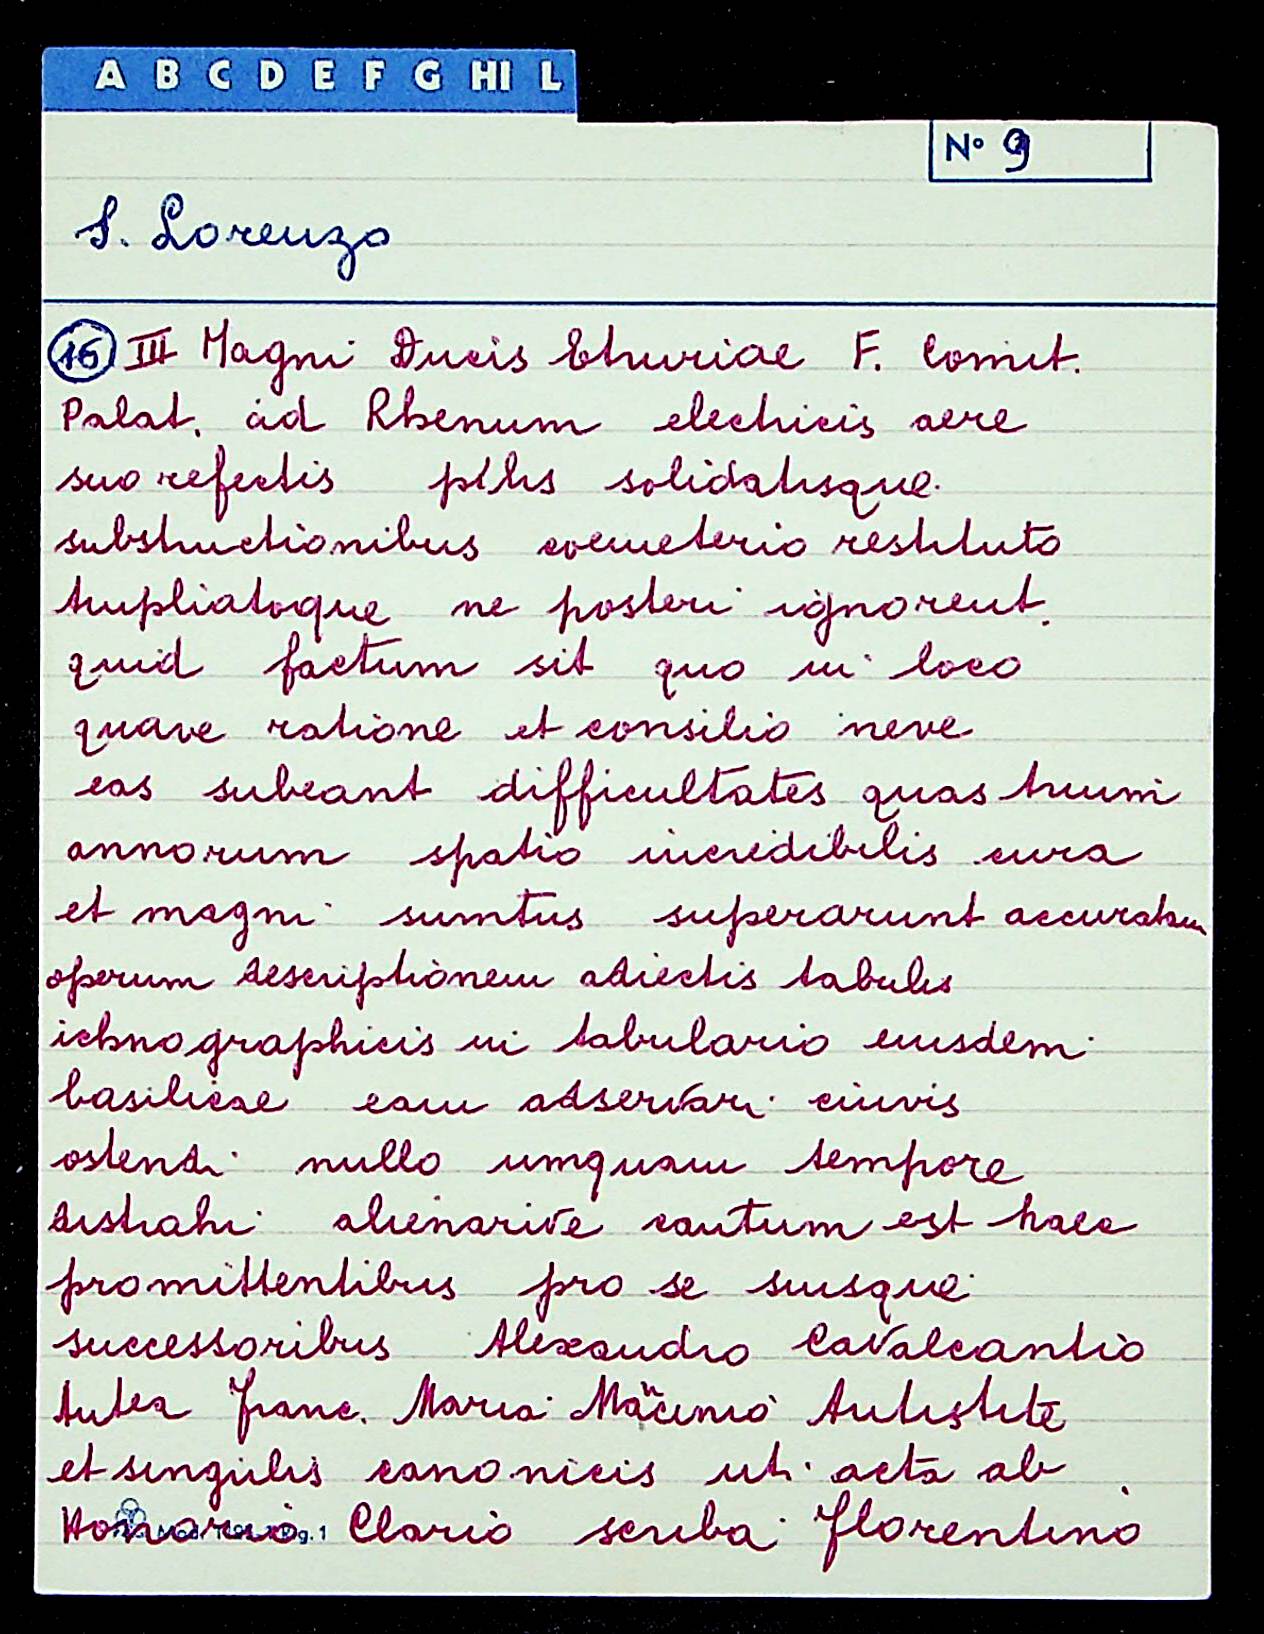 A B C D E F G HI L
N° 9
S. Lorenzo
16 III Magni Ducis Ethuriae F. Comit.
Palat. ad Rhenum electricis aere
suo refectis pilis solidatisque
substructionibus coemeterio restituto
Ampliatoque ne posteri ignorent
quid factum sit quo in loco
quave ratione et consilio neve
eas subeant difficultates quas trium
annorum spatio incredibilis cura
et magni sumtus superarunt accuratam
operum descriptionem adiectis tabulis
ichnographicis in tabulario eiusdem
basilicae eam adservari civis
ostendi nullo umquam tempore
distrahi alienarive cautum est haec
promittentibus pro se suisque
successoribus Alexandro Cavalcantio
Antea Franc. Maria Mancinio Antistite
et singulis canonicis uti acta ab
Clario scriba Florentino